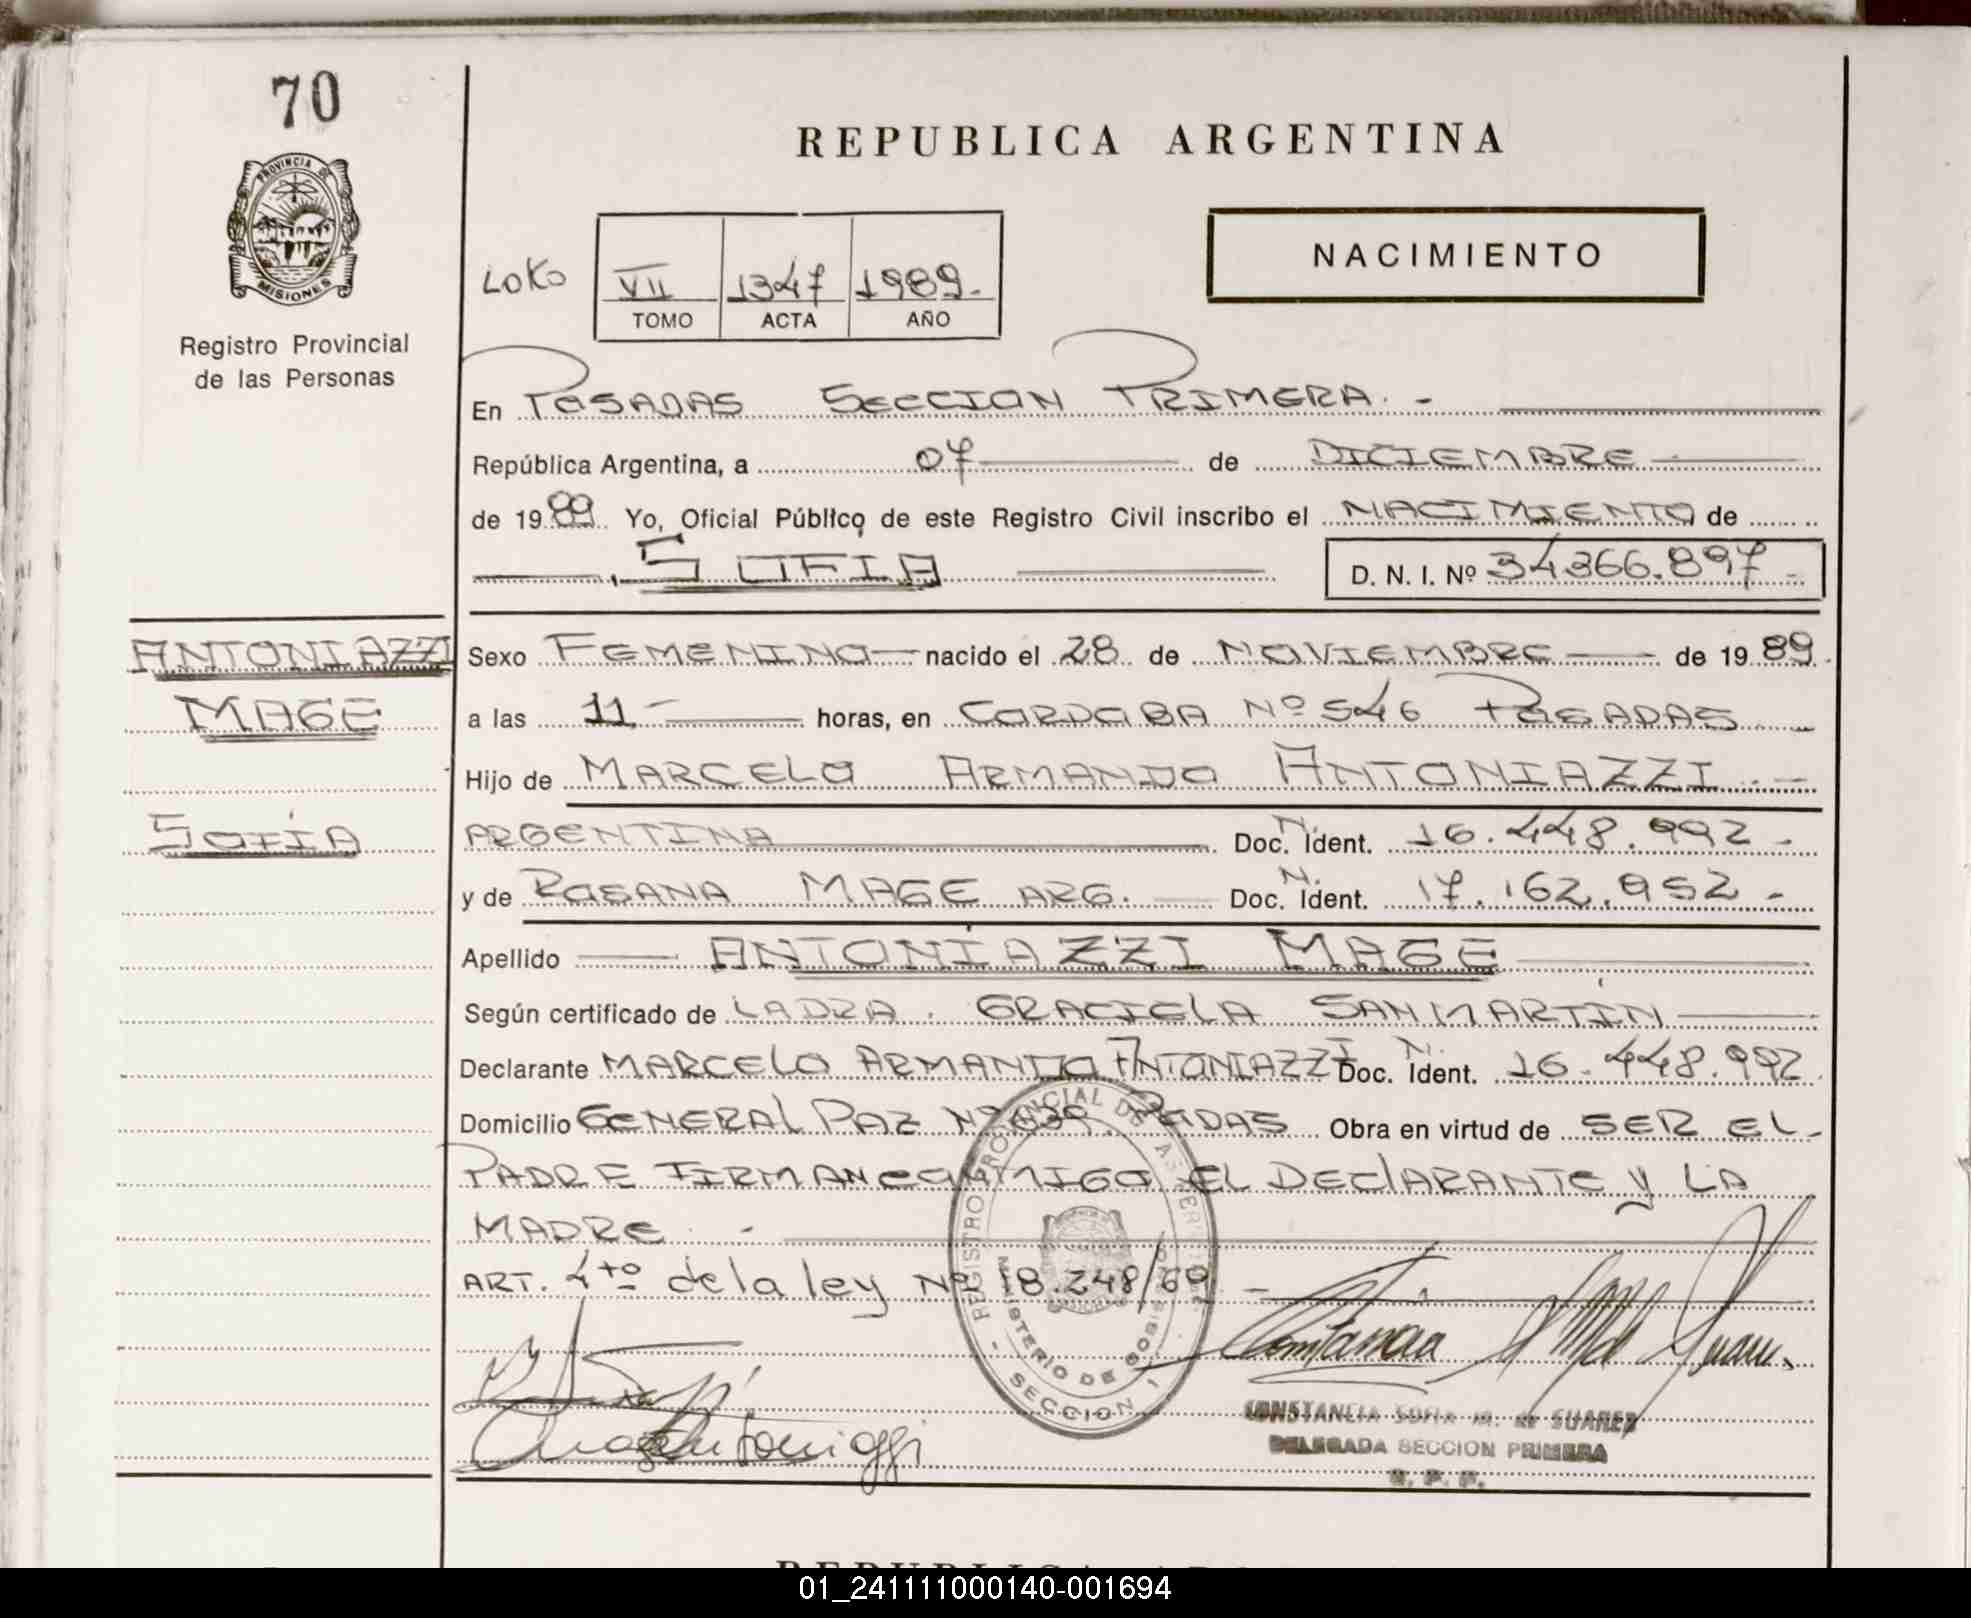 70
PROVINCIA DE
MISIONES
Registro Provincial
de las Personas
REPUBLICA ARGENTINA
NACIMIENTO
LOKO
VII 1347 1989.-
TOMO ACTA AÑO
En POSADAS SECCION PRIMERA.-
República Argentina, a 07 de DICIEMBRE
de 1989 Yo, Oficial Público de este Registro Civil inscribo el NACIMIENTO de
SOFIA D. N. I. Nº 34366.897-
ANTONIAZZI
MAGE
SOFÍA
Sexo FEMENINO nacido el 28 de NOVIEMBRE de 1989.
a las 11 horas, en CORDOBA Nº 546 POSADAS
Hijo de MARCELO ARMANDO ANTONIAZZI.-
ARGENTINA Doc. N. Ident. 16.448.992-
y de ROSANA MAGE ARG. Doc. N. Ident. 17.162.952-
Apellido ANTONIAZZI MAGE
Según certificado de LA DRA. GRACIELA SANMARTÍN
Declarante MARCELO ARMANDO ANTONIAZZI Doc. N. Ident. 16.448.992
Domicilio GENERAL PAZ Nº PDAS Obra en virtud de SER EL
PADRE FIRMAN CONMIGO EL DECLARANTE Y LA
MADRE.-
ART. 4to de la ley Nº 18.248/69.-
REGISTRO PROVINCIAL DE
MINISTERIO DE GOBIERNO
- SECCION 1
Constancia
CONSTANCIA SOFIA M. de SUAREZ
DELEGADA SECCION PRIMERA
R. P. P.
01_241111000140-001694